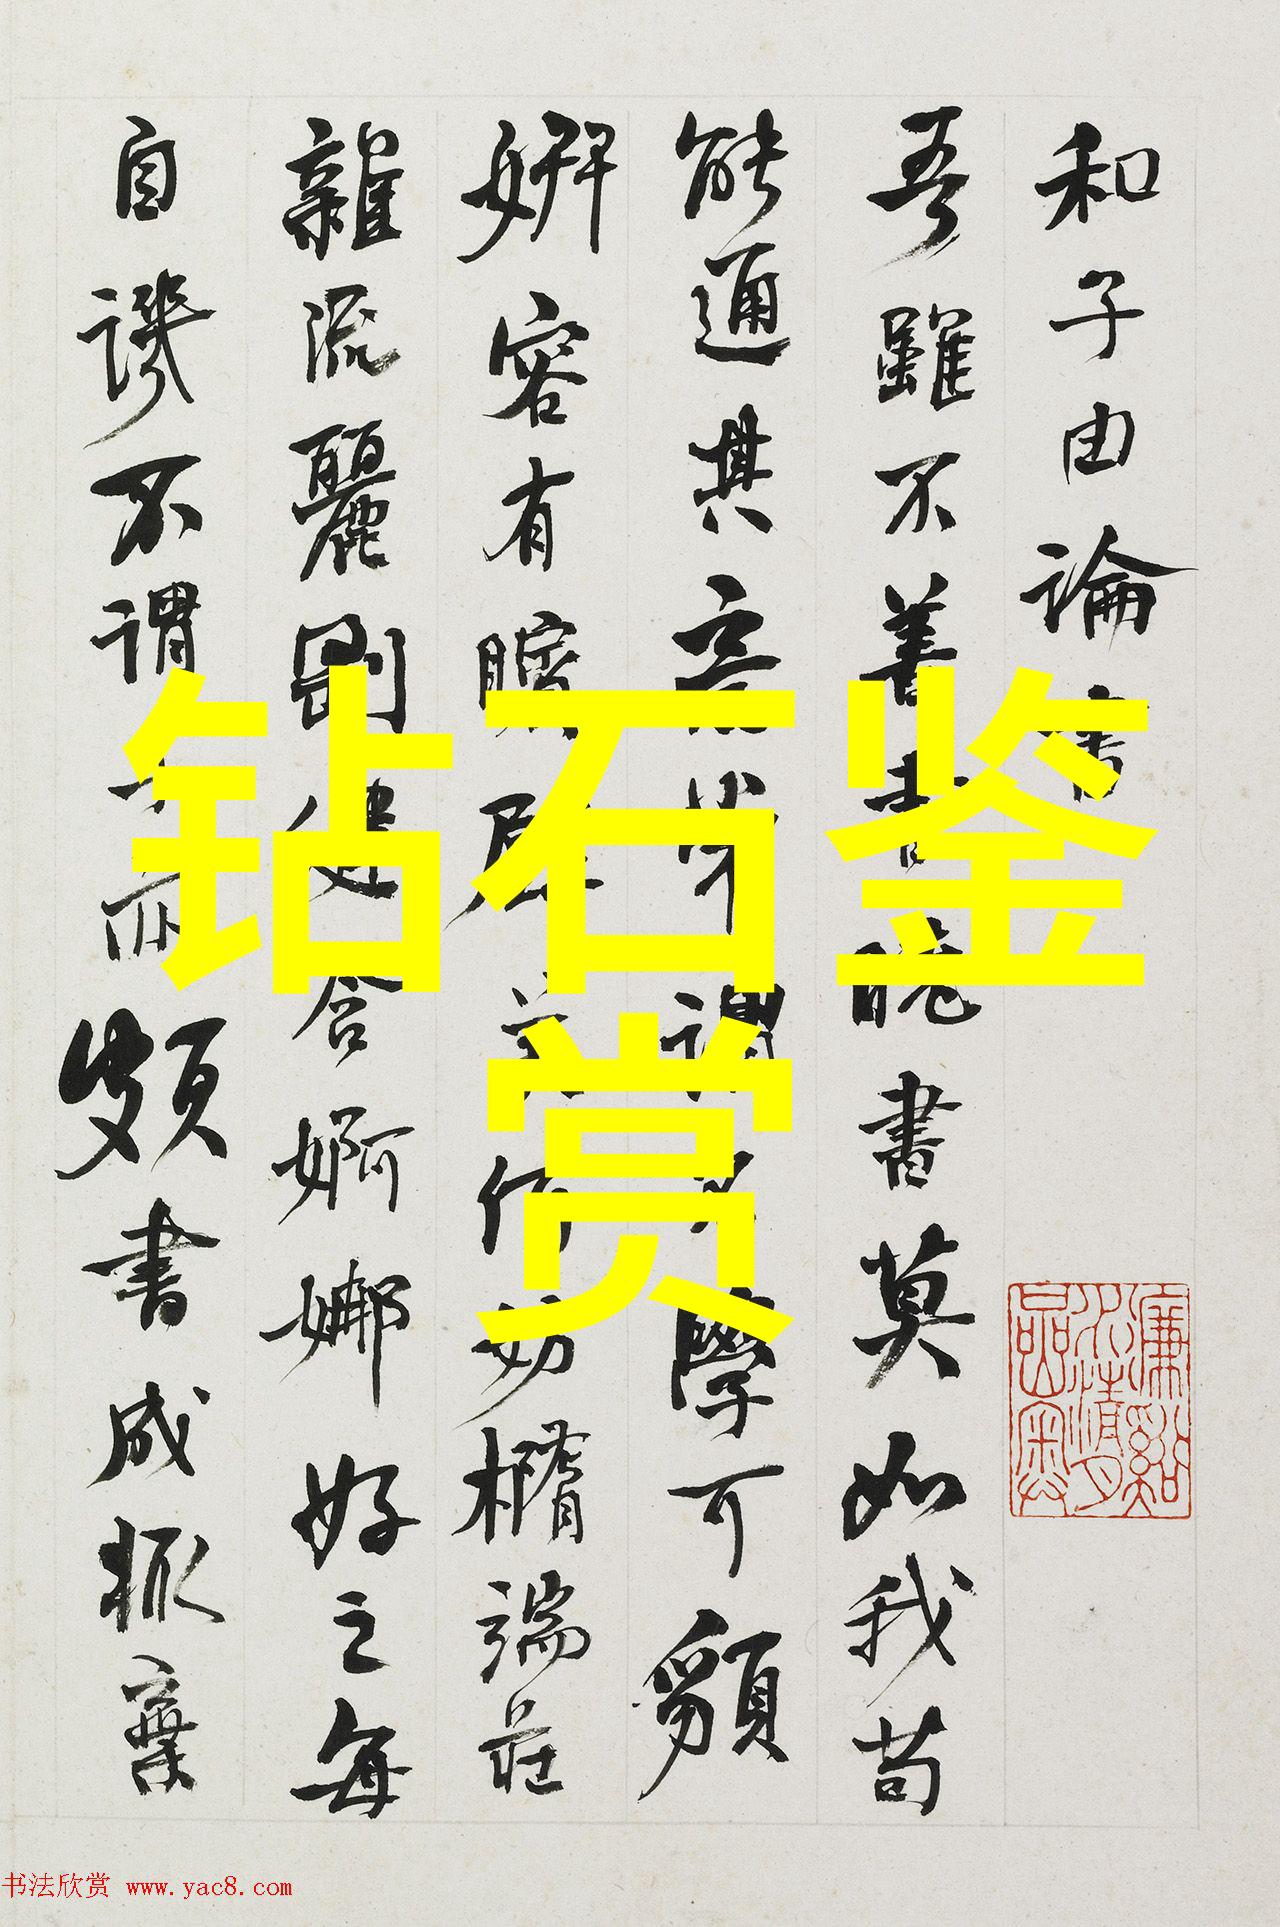 和子由論書
吾雖不善書曉書莫如我苟
能通其意常謂不學可䫉
妍容有矉璧美何妨橢端莊
雜流麗剛健含婀娜好之每
自譏不謂子亦頗書成輒棄
钻石鉴
赏
书法欣赏 www.yac8.com